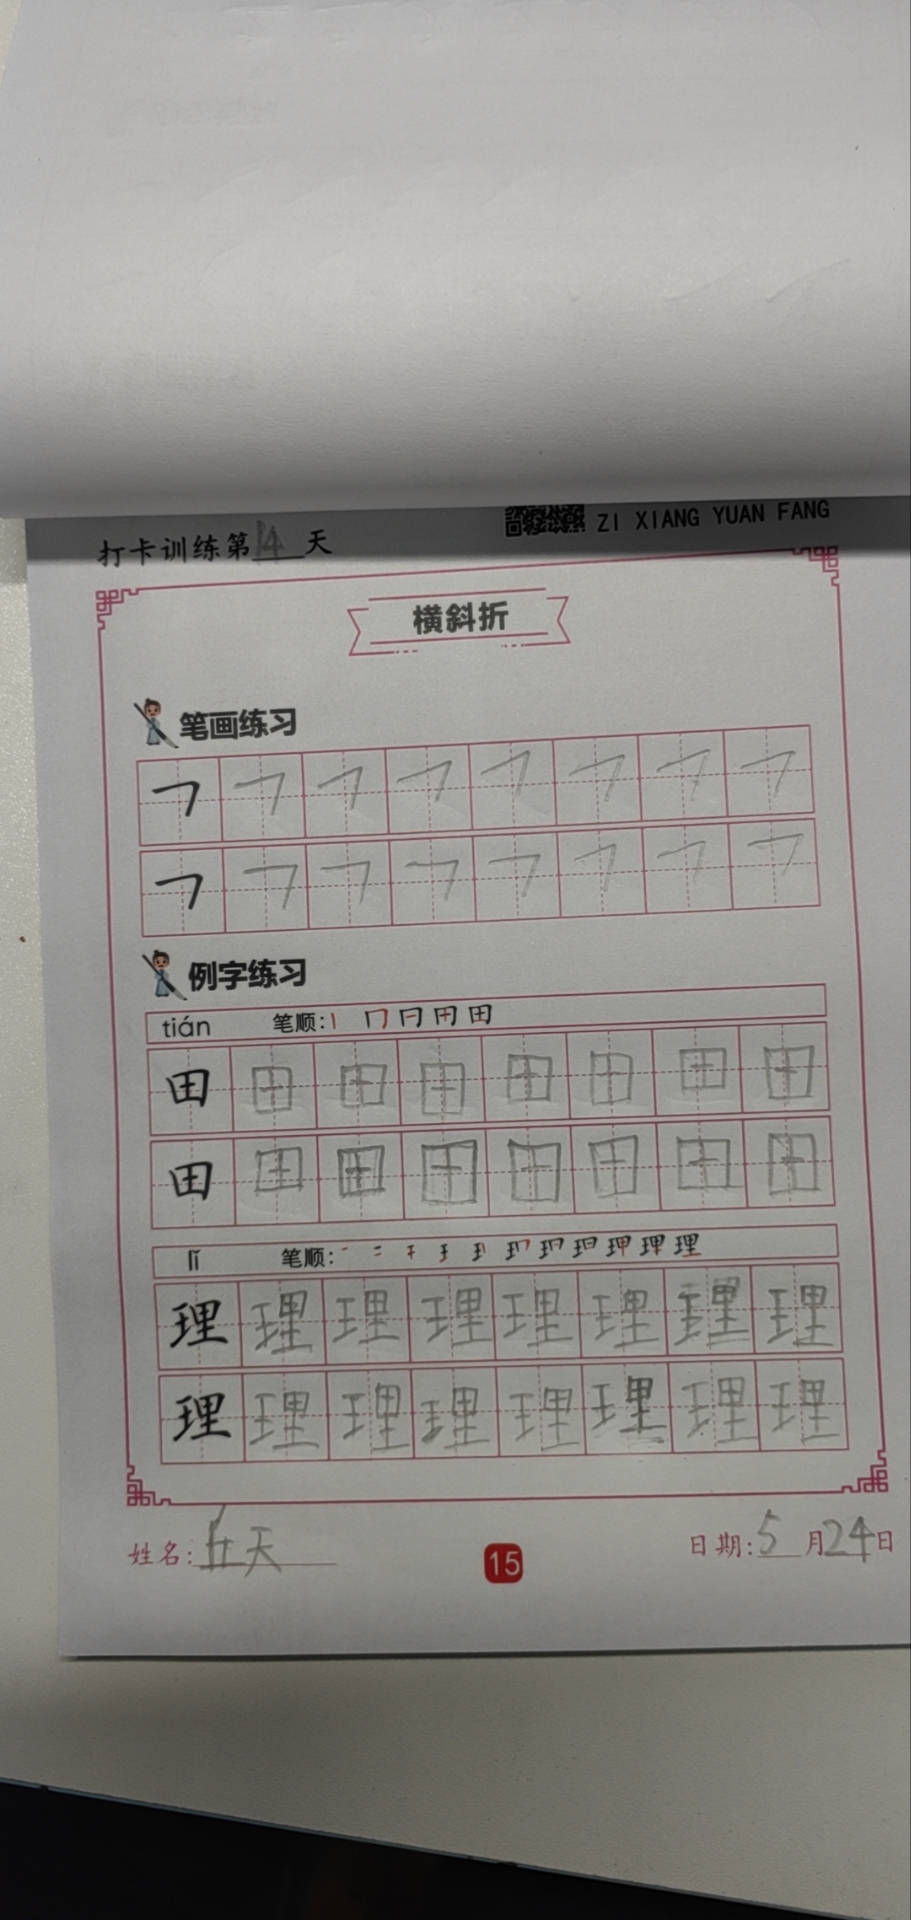 打卡训练第14天
ZI XIANG YUAN FANG
横斜折
笔画练习
例字练习
tián 笔顺:
田 田 田 田 田 田 田 田
田 田 田 田 田 田 田 田
lǐ 笔顺:
理 理 理 理 理 理 理 理
理 理 理 理 理 理 理 理
姓名: 天
15
日期:5月24日